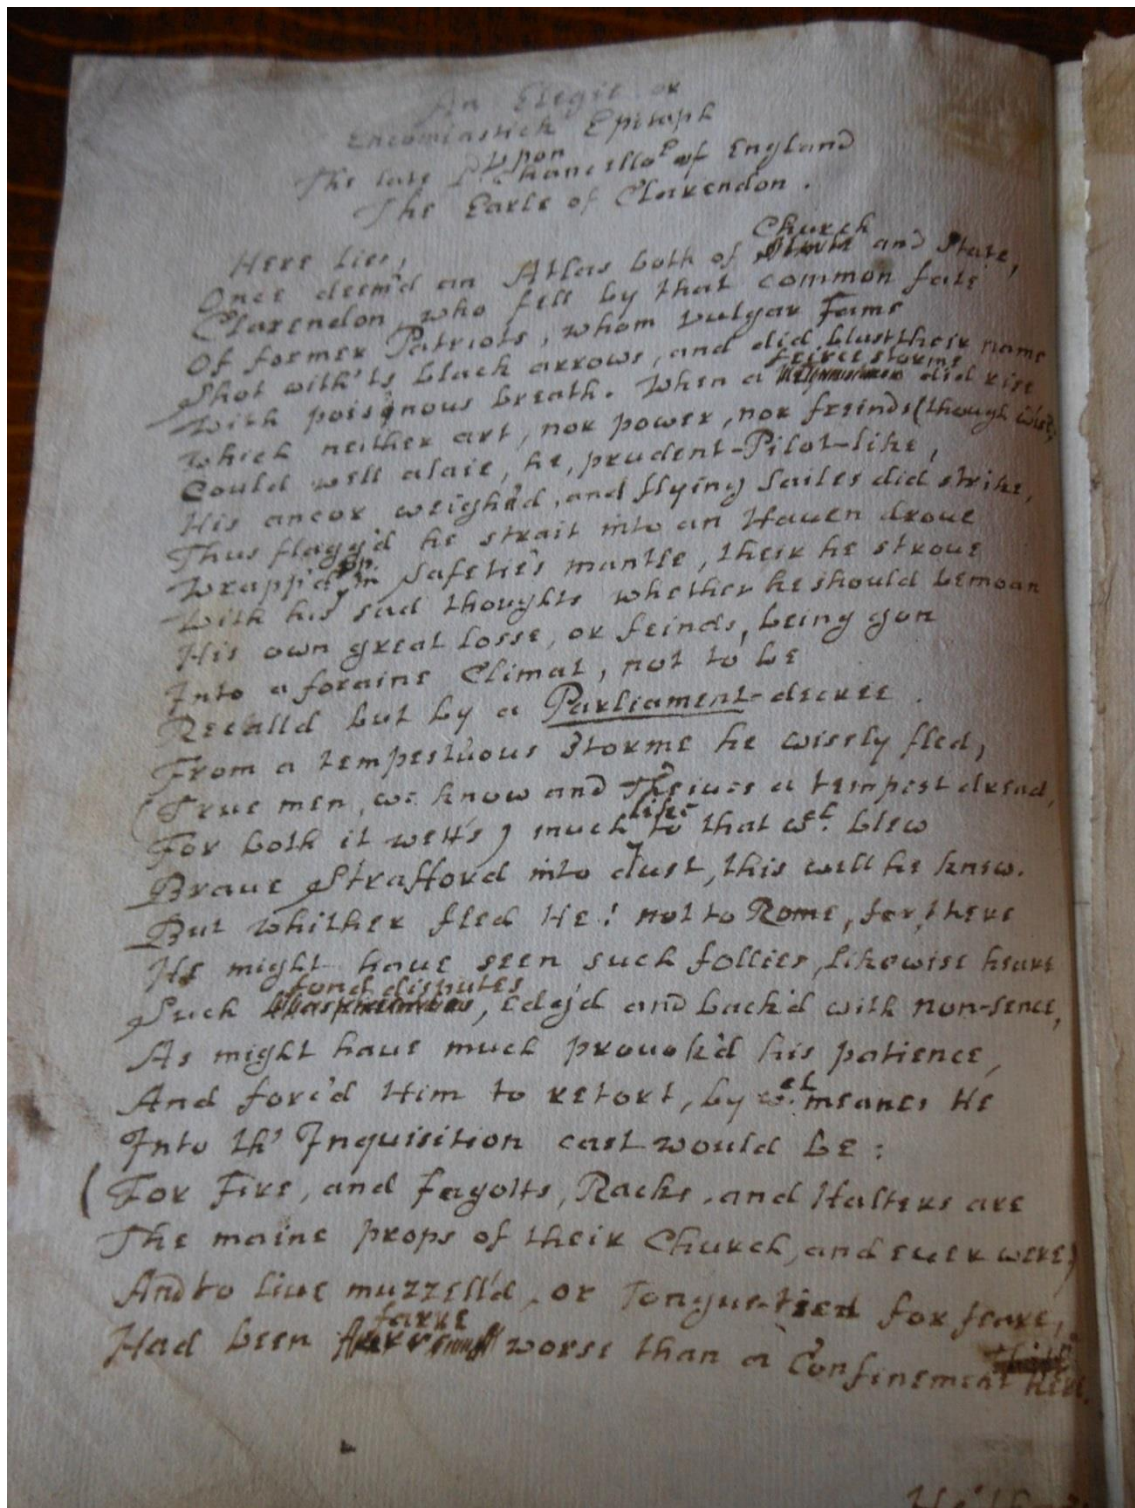 An Elegie or
Encomiastick Epitaph
Upon
The late Ld Chancellor of England
The Earle of Clarendon.
Here lies,
Once deem'd an Atlas both of Church and State,
Clarendon, who fell by that common fate
Of former Patriots, whom vulgar Fame
Shot with'ts black arrows, and did blast their name
With poisonous breath. When a feirce storme did rise
Which neither art, nor power, nor freinds (though wise)
Could well alaie, he, prudent-Pilot-like,
His ancor weigh'd, and flying Sailes did strike,
Thus flagg'd he strait into an Haven drove
Wrapp'd up in Safetie's mantle, their he strove
With his sad thoughts whether he should bemoan
His own great losse, or feinds, being gon
Into a foraine Climat, not to be
Recalld but by a Parliament-decree.
From a tempestuous Storme he wisely fled,
(True men, we know and Theives a tempest dread,
For both it wetts) much like to that wch blew
Brave Strafford into dust, this well he knew.
But whither fled He! not to Rome, for, there
He might have seen such follies, likewise heare
Such fond disputes, edg'd and back'd with non-sence,
As might have much provok'd his patience,
And forc'd Him to retort, by wch meanes He
Into th' Inquisition cast would be:
(For Fire, and fagotts, Racks, and Halters are
The maine props of their Church, and ever were)
And to live muzzell'd, or Tongue-tied for feare,
Had been farre worse than a Confinement Here.